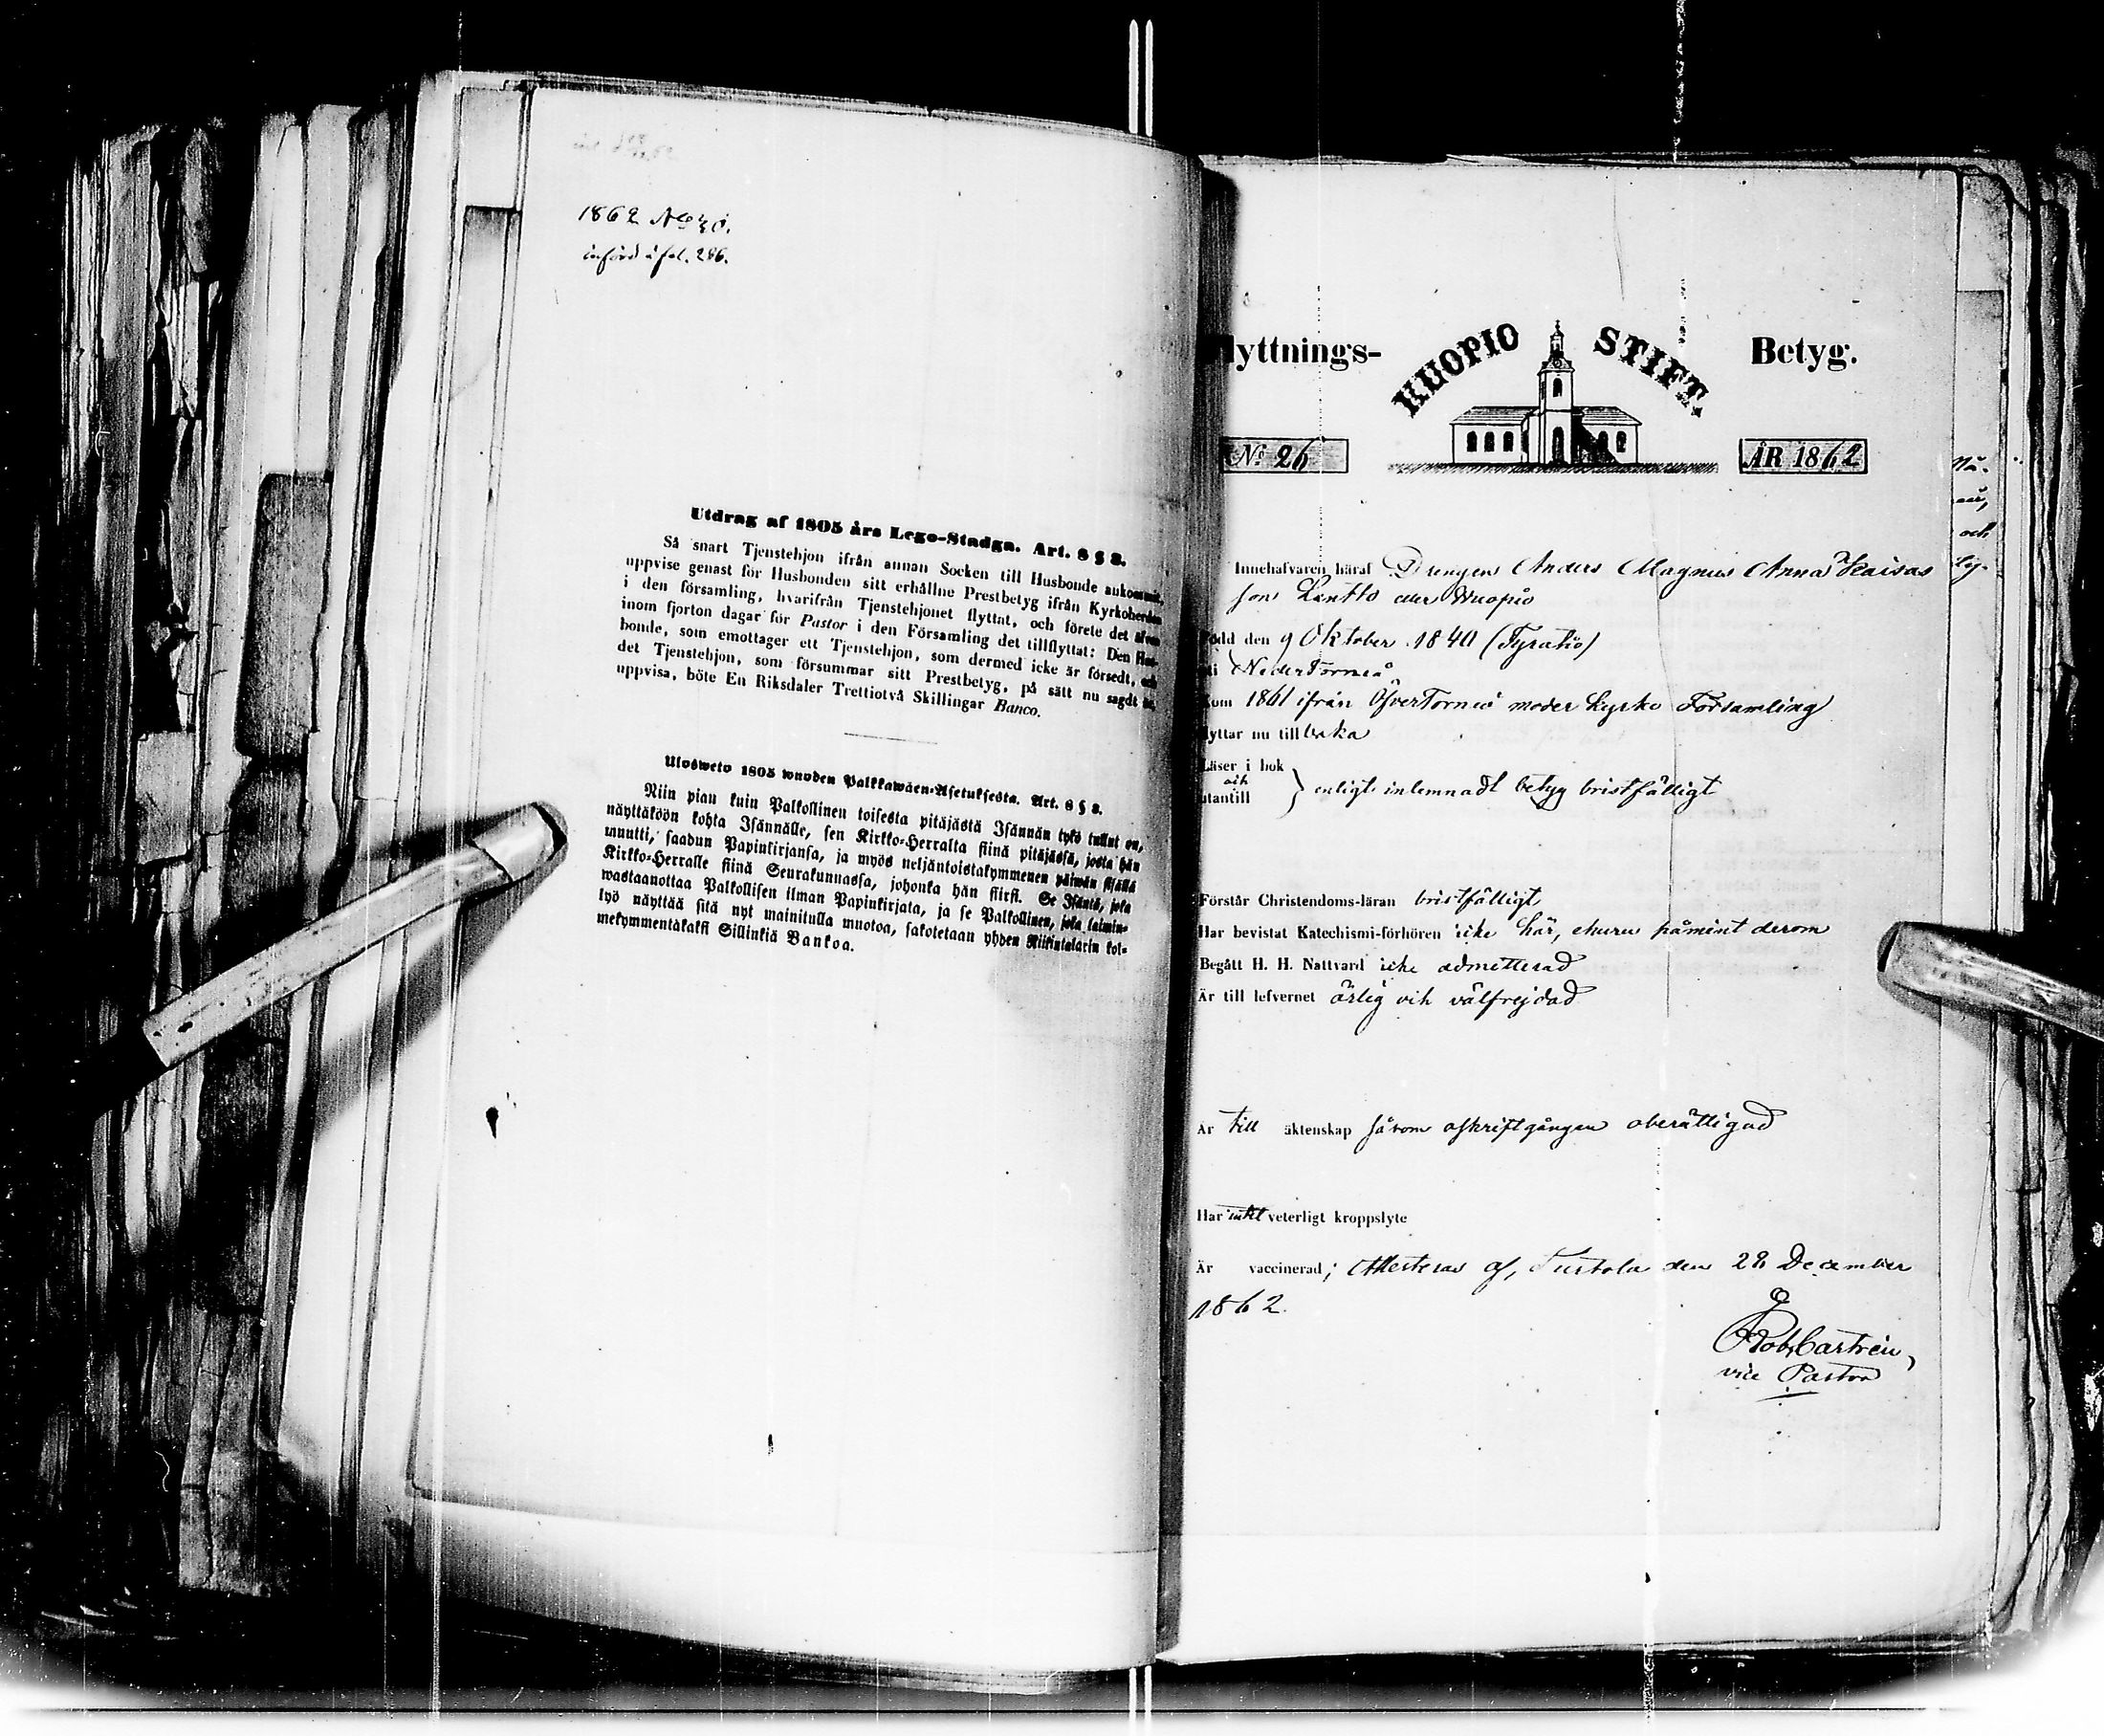 1862 No
införd å fol. 286.
Utdrag af 1805 års Lego-Stadga. Art. 8 § 2.
Så snart Tjenstehjon ifrån annan Socken till Husbonde ankommit,
uppvise genast för Husbonden sitt erhållne Prestbetyg ifrån Kyrkoherden
i den församling, hvarifrån Tjenstehjonet flyttat, och förete det äfven
inom fjorton dagar för Pastor i den Församling det tillflyttat: Den Hus-
bonde, som emottager ett Tjenstehjon, som dermed icke är försedt, och
det Tjenstehjon, som försummar sitt Prestbetyg, på sätt nu sagdt är,
uppvisa, böte En Riksdaler Trettiotvå Skillingar Banco.
Ulosweto 1805 wuoden Palkkawäen-Asetuksesta. Art. 8 § 2.
Niin pian kuin Palkollinen toisesta pitäjästä Isännän tykö tullut on,
näyttäköön kohta Isännälle, sen Kirkko-Herralta siinä pitäjässä, josta hän
muutti, saadun Papinkirjansa, ja myös neljäntoistakymmenen päiwän sisällä
Kirkko-Herralle siinä Seurakunnassa, johonka hän siirsi. Se Isäntä, joka
wastaanottaa Palkollisen ilman Papinkirjata, ja se Palkollinen, joka laimin-
lyö näyttää sitä nyt mainitulla muotoa, sakotetaan yhden Riikintalarin kol-
mekymmentäkaksi Sillinkiä Bankoa.
lyttnings- KUOPIO STIFT. Betyg.
No 26 ÅR 1862
Innehafvaren häraf Drengen Anders Magnus Anna Kaisas
son Lantto eller Wuopio
Född den 9 Oktober 1840 (Tyratiö)
i NederTorneå
Kom 1861 ifrån ÖfverTorneå moder kyrko Församling
lyttar nu tillbaka
Läser i bok
och
utantill } enligt inlemnadt betyg bristfälligt
Förstår Christendoms-läran bristfälligt
Har bevistat Katechismi-förhören icke här, ehuru påmint derom
Begått H. H. Nattvard icke admitterad
Är till lefvernet ärlig och välfrejdad
Är till äktenskap såsom oskriftgången oberättigad
Har intet veterligt kroppslyte
Är vaccinerad; Attesteras af, Turtola den 28 December
1862.
Rob. Castrén,
vice Pastor
och